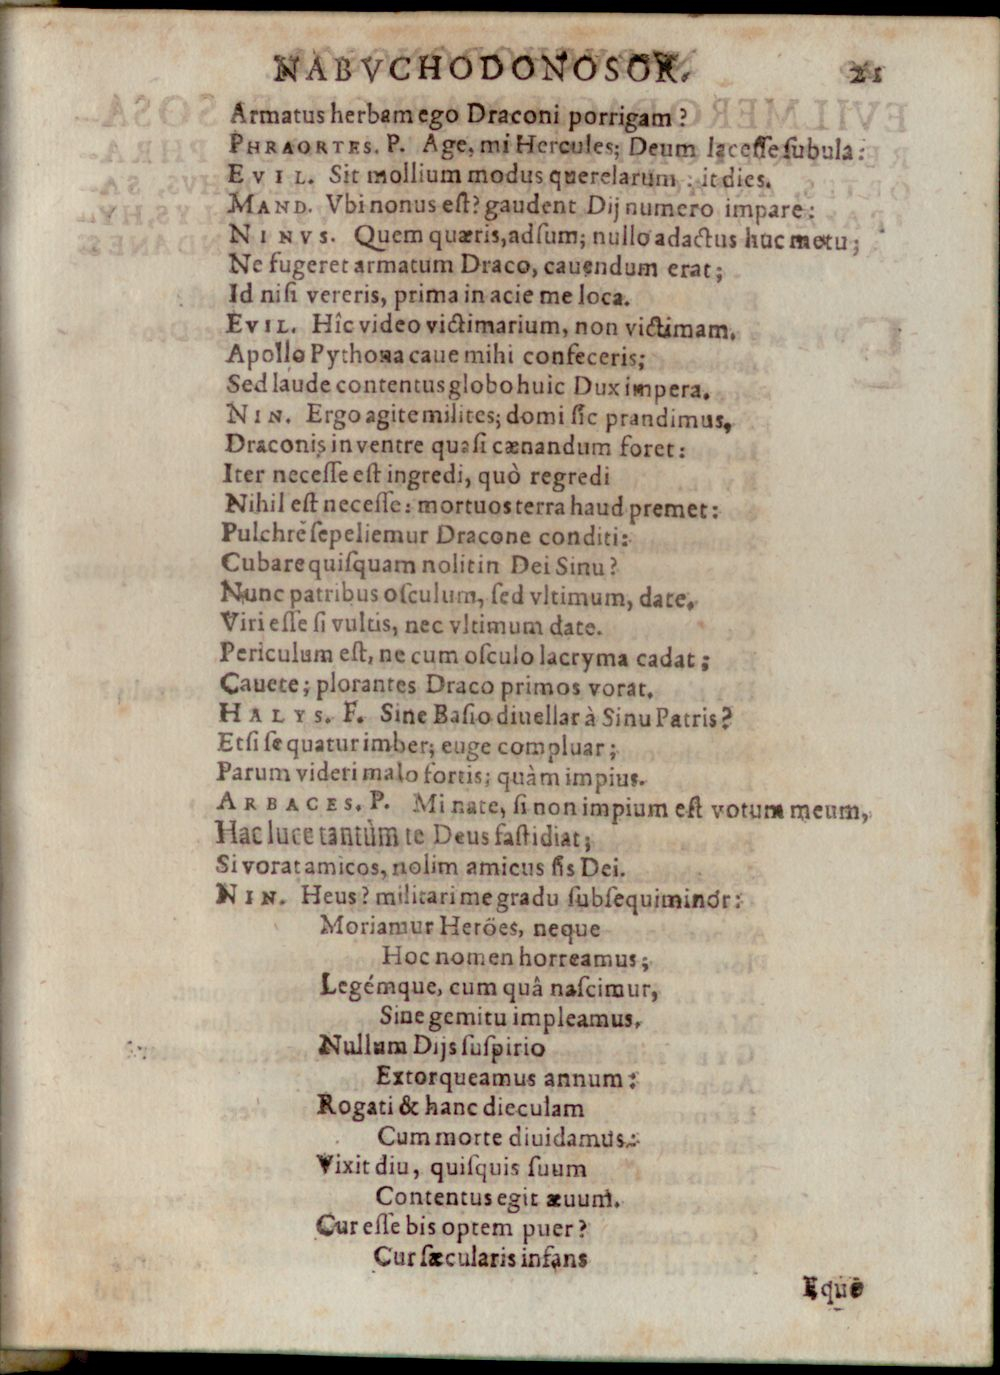 NABVCHODONOSOR. 21
Armatus herbam ego Draconi porrigam?
PHRAORTES. P. Age, mi Hercules; Deum laceſſe ſubula:
EVIL. Sit mollium modus querelarum: it dies.
MAND. Vbi nonus eſt? gaudent Dij numero impare:
NINVS. Quem quæris, adſum; nullo adactus huc metu;
Ne fugeret armatum Draco, cauendum erat;
Id niſi vereris, prima in acie me loca.
EVIL. Hîc video victimarium, non victimam.
Apollo Pythona caue mihi confeceris;
Sed laude contentus globo huic Dux impera.
NIN. Ergo agite milites; domi ſic prandimus,
Draconis in ventre quaſi cænandum foret:
Iter neceſſe eſt ingredi, quò regredi
Nihil eſt neceſſe: mortuos terra haud premet:
Pulchrè ſepeliemur Dracone conditi:
Cubare quiſquam nolit in Dei Sinu?
Nunc patribus oſculum, ſed vltimum, date.
Viri eſſe ſi vultis, nec vltimum date.
Periculum eſt, ne cum oſculo lacryma cadat;
Cauete; plorantes Draco primos vorat.
HALYS. F. Sine Baſio diuellar à Sinu Patris?
Etſi ſequatur imber; euge compluar;
Parum videri malo fortis; quàm impius.
ARBACES. P. Mi nate, ſi non impium eſt votum meum,
Hac luce tantùm te Deus faſtidiat;
Si vorat amicos, nolim amicus ſis Dei.
NIN. Heus? militari me gradu ſubſequiminor:
Moriamur Heröes, neque
Hoc nomen horreamus;
Legémque, cum quâ naſcimur,
Sine gemitu impleamus.
Nullum Dijs ſuſpirio
Extorqueamus annum:
Rogati & hanc dieculam
Cum morte diuidamus:
Vixit diu, quiſquis ſuum
Contentus egit æuum.
Cur eſſe bis optem puer?
Cur ſæcularis infans
Eque